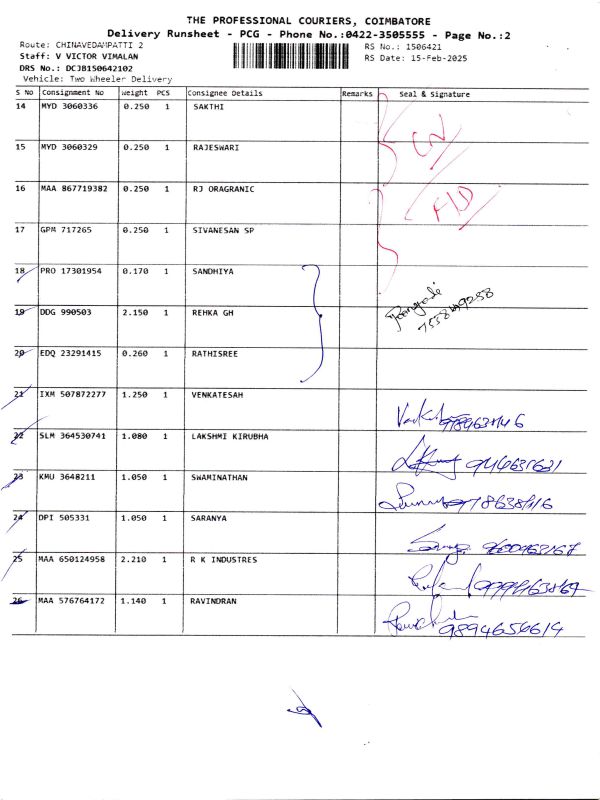 THE PROFESSIONAL COURIERS, COIMBATORE
Delivery Runsheet - PCG - Phone No.:0422-3505555 - Page No.:2
Route: CHINAVEDAMPATTI 2 RS No.: 1506421
Staff: V VICTOR VIMALAN RS Date: 15-Feb-2025
DRS No.: DCJB150642102
Vehicle: Two Wheeler Delivery
S No Consignment No Weight PCS Consignee Details Remarks Seal & Signature
14 MYD 3060336 0.250 1 SAKTHI
15 MYD 3060329 0.250 1 RAJESWARI
CN
16 MAA 867719382 0.250 1 RJ ORAGRANIC
17 GPM 717265 0.250 1 SIVANESAN SP
18 PRO 17301954 0.170 1 SANDHIYA
19 DDG 990503 2.150 1 REHKA GH
20 EDQ 23291415 0.260 1 RATHISREE
21 IXM 507872277 1.250 1 VENKATESAH
22 SLM 364530741 1.080 1 LAKSHMI KIRUBHA
23 KMU 3648211 1.050 1 SWAMINATHAN
24 DPI 505331 1.050 1 SARANYA
25 MAA 650124958 2.210 1 R K INDUSTRES
26 MAA 576764172 1.140 1 RAVINDRAN
9894656614